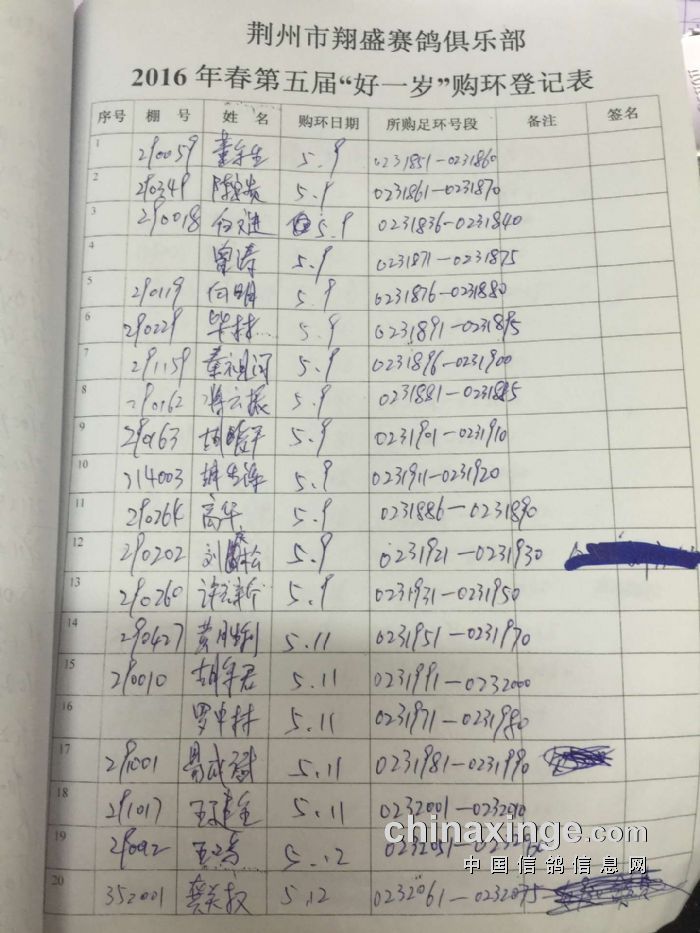 荆州市翔盛赛鸽俱乐部
2016年春第五届“好一岁”购环登记表
序号 棚 号 姓 名 购环日期 所购足环号段 备注 签名
1 290059 5.9 0231851—0231860
2 290349 5.9 0231861—0231870
3 290018 5.9 0231836—0231840
4 曾涛 5.9 0231871—0231875
5 290119 向明 5.9 0231876—0231880
6 290229 5.9 0231891—0231895
7 291159 5.9 0231896—0231900
8 290162 5.9 0231881—0231885
9 290163 5.9 0231901—0231910
10 214003 5.9 0231911—0231920
11 290264 高华 5.9 0231886—0231890
12 290202 5.9 0231921—0231930
13 290260 5.9 0231931—0231950
14 290427 黄胜利 5.11 0231951—0231970
15 290010 胡军君 5.11 0231991—0232000
16 罗中林 5.11 0231971—0231980
17 291001 5.11 0231981—0231990
18 291017 王建全 5.11 0232001—
19 5.12
20 352001 5.12 0232061—0232075
chinaxinge.com
中国信鸽信息网